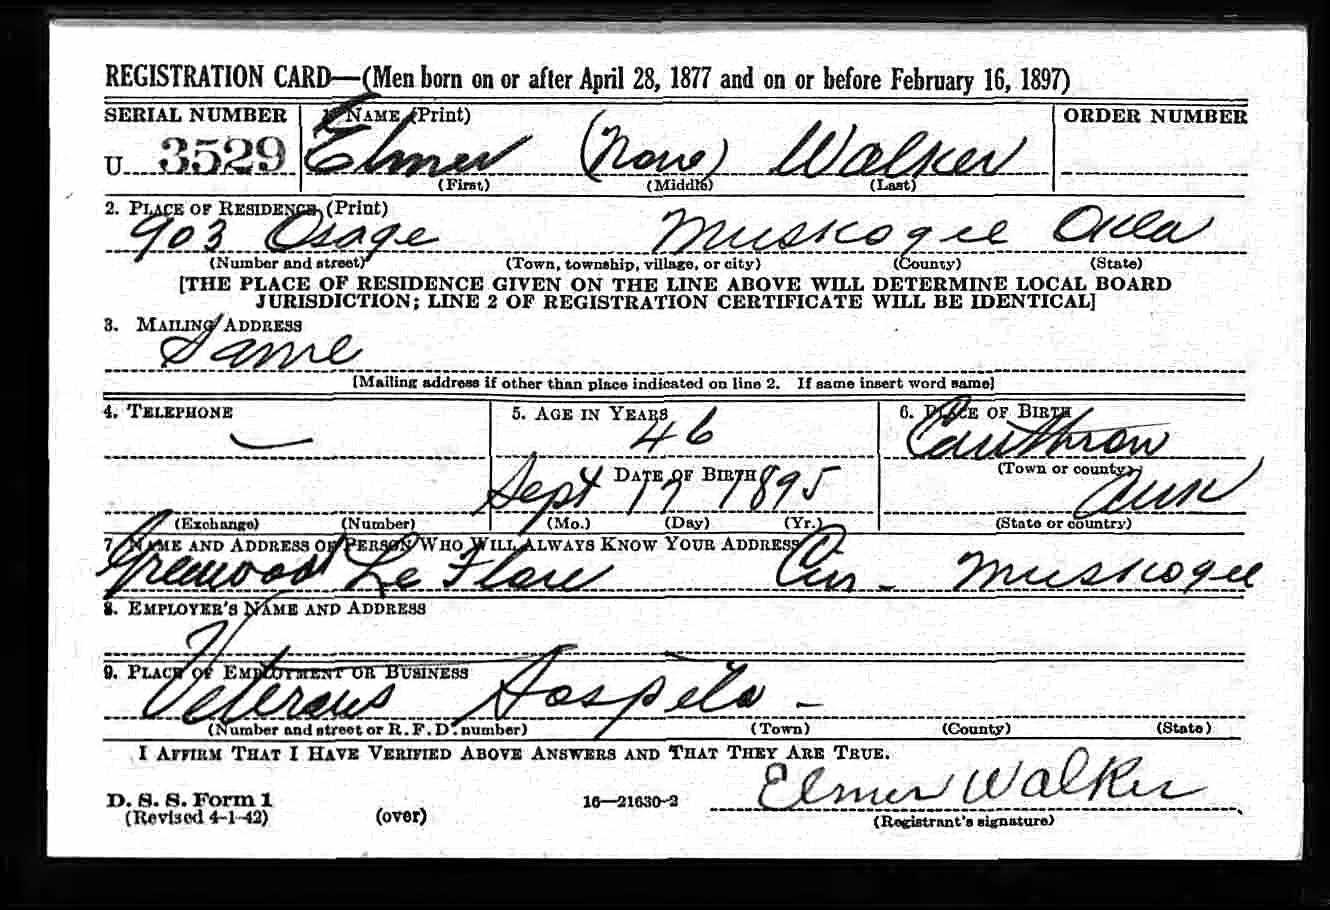 REGISTRATION CARD—(Men born on or after April 28, 1877 and on or before February 16, 1897)
SERIAL NUMBER 1. NAME (Print) ORDER NUMBER
U 3529 Elmer (None) Walker
(First) (Middle) (Last)
2. PLACE OF RESIDENCE (Print)
903 Osage Muskogee Okla
(Number and street) (Town, township, village, or city) (County) (State)
[THE PLACE OF RESIDENCE GIVEN ON THE LINE ABOVE WILL DETERMINE LOCAL BOARD
JURISDICTION; LINE 2 OF REGISTRATION CERTIFICATE WILL BE IDENTICAL]
3. MAILING ADDRESS
Same
[Mailing address if other than place indicated on line 2. If same insert word same]
4. TELEPHONE 5. AGE IN YEARS 6. PLACE OF BIRTH
— 46 Cauthron
DATE OF BIRTH (Town or county)
Sept 17 1895 Ark
(Exchange) (Number) (Mo.) (Day) (Yr.) (State or country)
7. NAME AND ADDRESS OF PERSON WHO WILL ALWAYS KNOW YOUR ADDRESS
Greenwood Le Flore Muskogee
8. EMPLOYER'S NAME AND ADDRESS
9. PLACE OF EMPLOYMENT OR BUSINESS
Veterans Hospita -
(Number and street or R. F. D. number) (Town) (County) (State)
I AFFIRM THAT I HAVE VERIFIED ABOVE ANSWERS AND THAT THEY ARE TRUE.
Elmer Walker
D. S. S. Form 1 16—21630-2
(Revised 4-1-42) (over) (Registrant's signature)